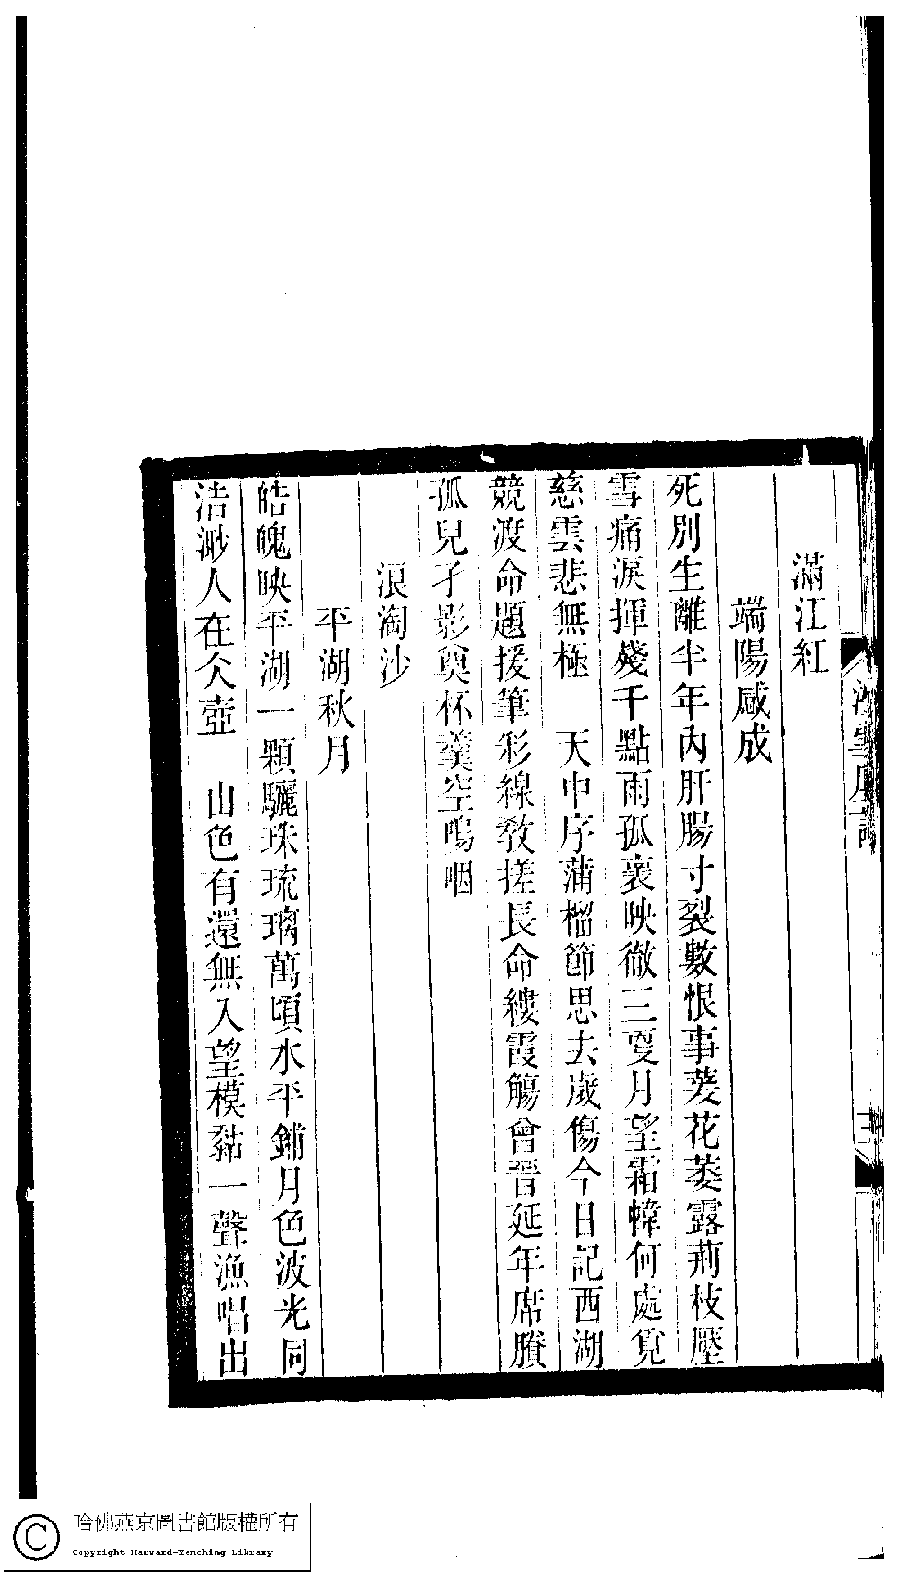 滿江紅
端陽感成
死別生離半年內肝腸寸裂數恨事萎花萎露荊枝壓
雪痛淚揮殘千點雨孤衷映徹三更月望霜幃何處覓
慈雲悲無極　天中序蒲榴節思去歲傷今日記西湖
競渡命題援筆彩線教搓長命縷霞觴曾晉延年席賸
孤兒孑影奠杯羹空嗚咽
浪淘沙
平湖秋月
皓魄映平湖一顆驪珠琉璃萬頃水平鋪月色波光同
浩渺人在仌壺　山色有還無入望模黏一聲漁唱出
哈佛燕京圖書館版權所有
Copyright Harvard-Yenching Library